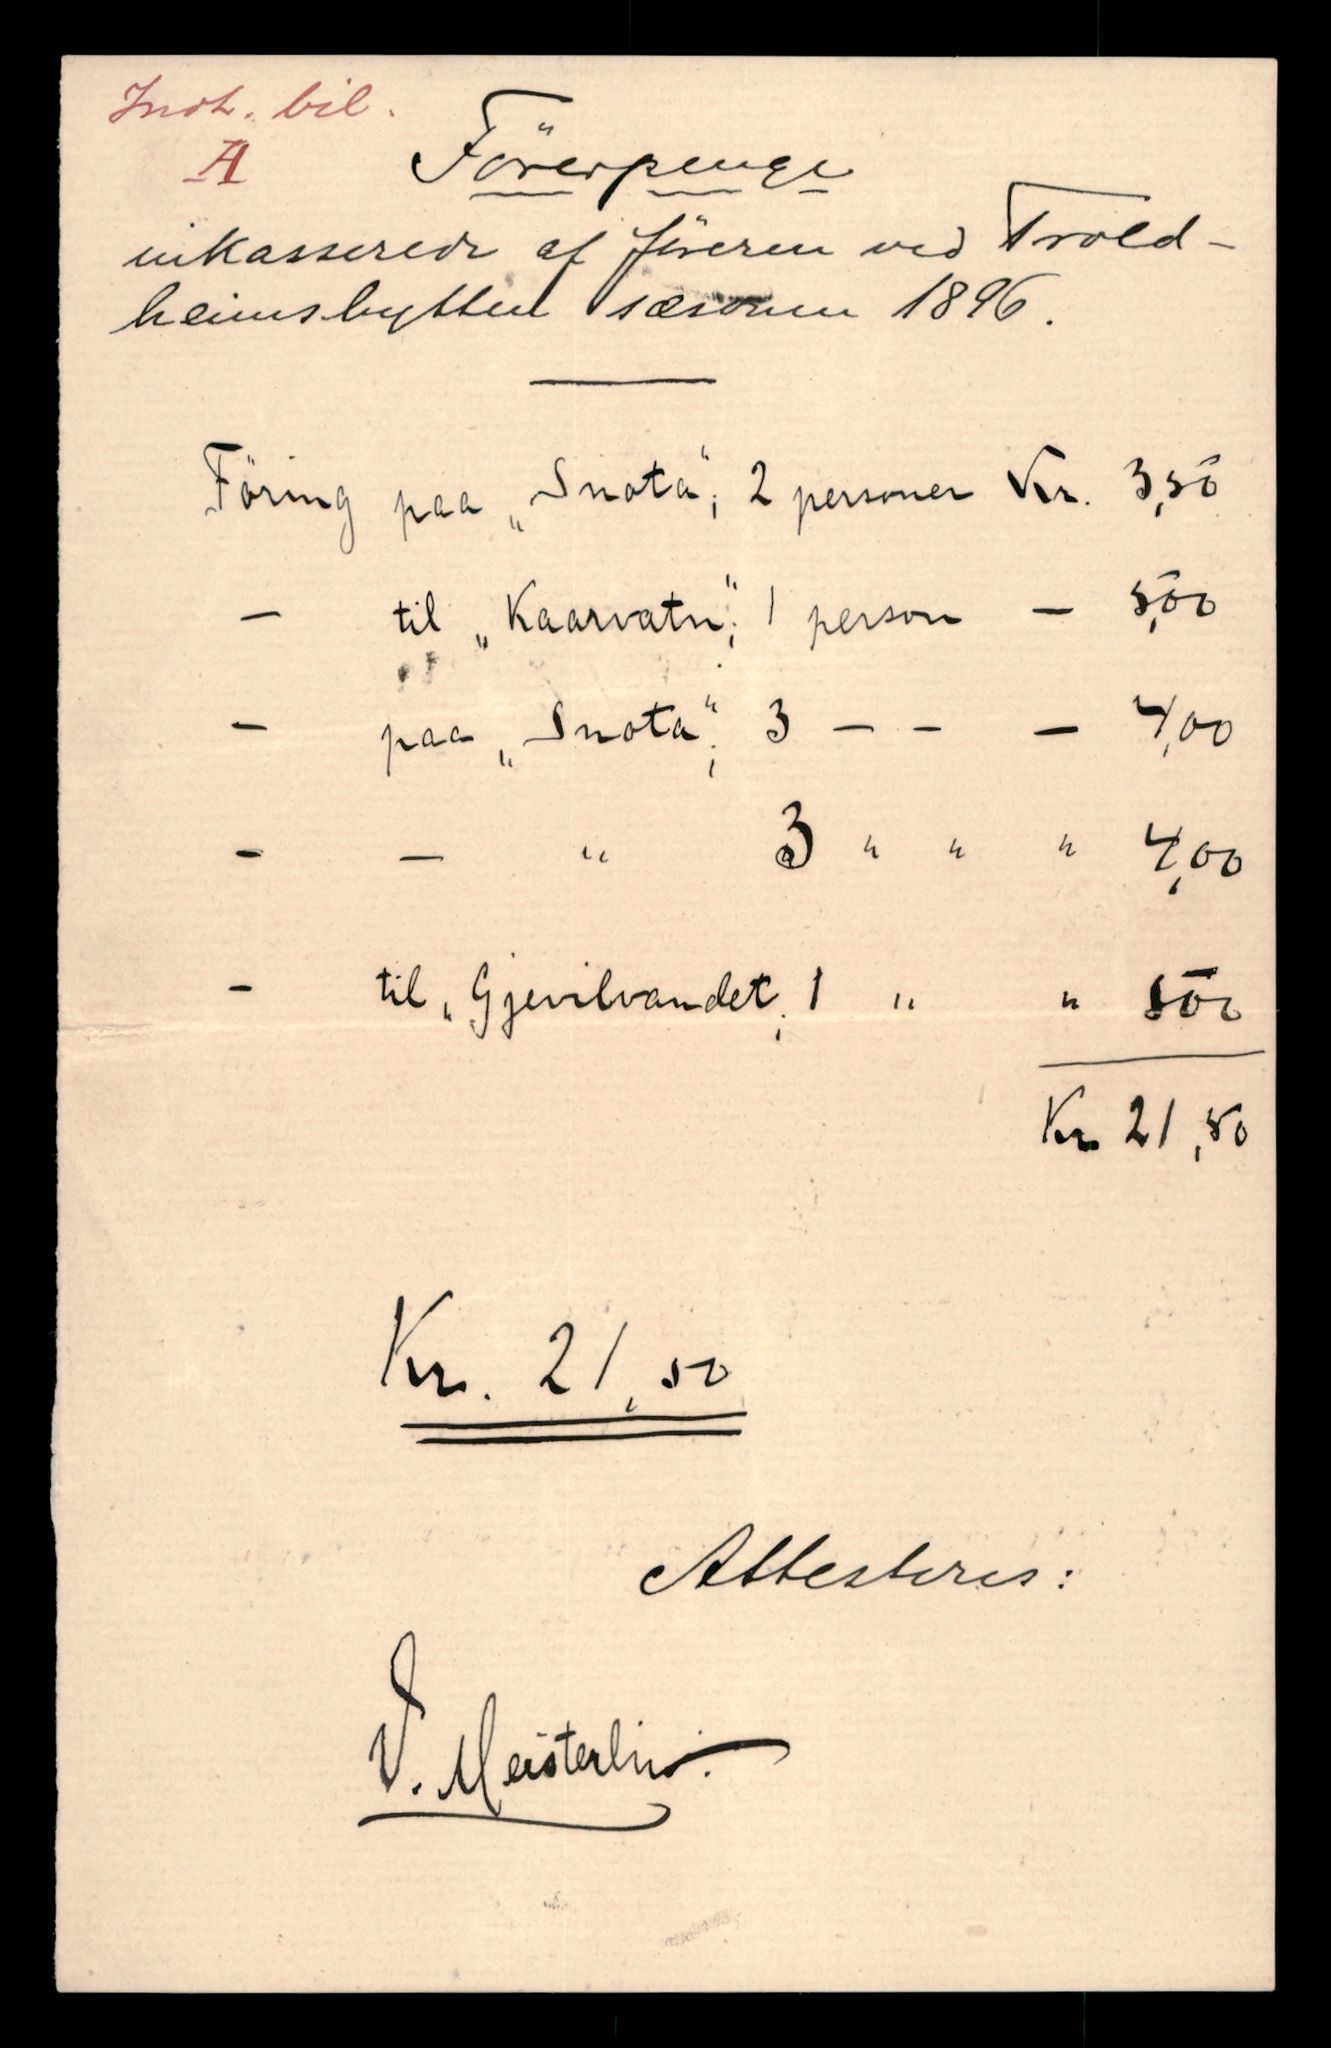 Indt. bil.
A
Förerpenge
inkasserede af föreren ved Trold-
heimshytten sæsonen 1896.
Föring paa „Snota", 2 personer Kr. 3,50
— til „Kaarvatn", 1 person — 5,00
— paa „Snota", 3 — — — 4,00
— — " 3 " " " 4,00
— til „Gjevilvandet, 1 " " 500
Kr 21,50
Kr. 21,50
Attesteres:
V. Meisterlin.